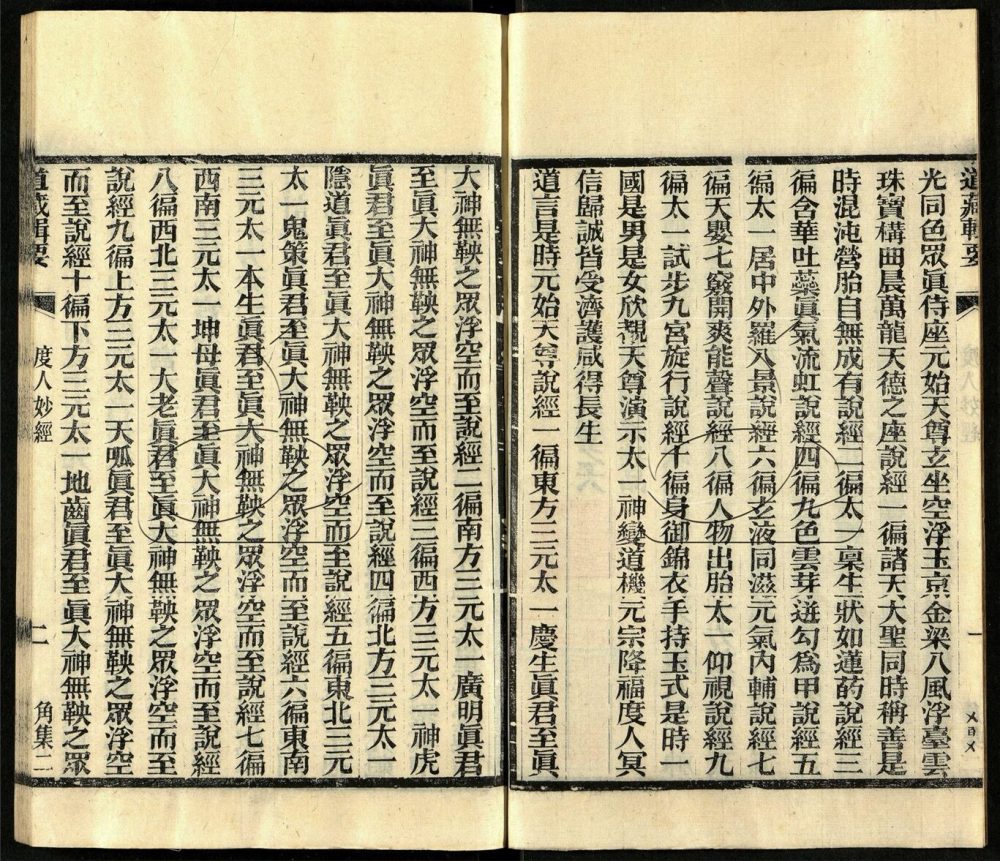 道藏輯要
光同色眾眞侍座元始天尊玄坐空浮玉京金梁八風浮臺雲
珠寶構田晨萬龍天德之座說經一徧諸天大聖同時稱善是
時混沌營胎自無成有說經二徧太一稟生狀如蓮菂說經三
徧含華吐蘂眞氣流虹說經四徧九色雲芽迸勾爲甲說經五
徧太一居中外羅八景說經六徧玄液同滋元氣內輔說經七
徧天嬰七竅開爽能聲說經八徧人物出胎太一仰視說經九
徧太一試步九宮旋行說經十徧身御錦衣手持玉式是時一
國是男是女欣覩天尊演示太一神變道機元宗降福度人冥
信歸誠皆受濟護咸得長生
道言是時元始天尊說經一徧東方三元太一慶生眞君至眞
大神無鞅之眾浮空而至說經二徧南方三元太一廣明眞君
至眞大神無鞅之眾浮空而至說經三徧西方三元太一神虎
眞君至眞大神無鞅之眾浮空而至說經四徧北方三元太一
隱道眞君至眞大神無鞅之眾浮空而至說經五徧東北三元
太一鬼策眞君至眞大神無鞅之眾浮空而至說經六徧東南
三元太一本生眞君至眞大神無鞅之眾浮空而至說經七徧
西南三元太一坤母眞君至眞大神無鞅之眾浮空而至說經
八徧西北三元太一大老眞君至眞大神無鞅之眾浮空而至
說經九徧上方三元太一天呱眞君至眞大神無鞅之眾浮空
而至說經十徧下方三元太一地齒眞君至眞大神無鞅之眾
道藏輯要 度人妙經 二 角集二